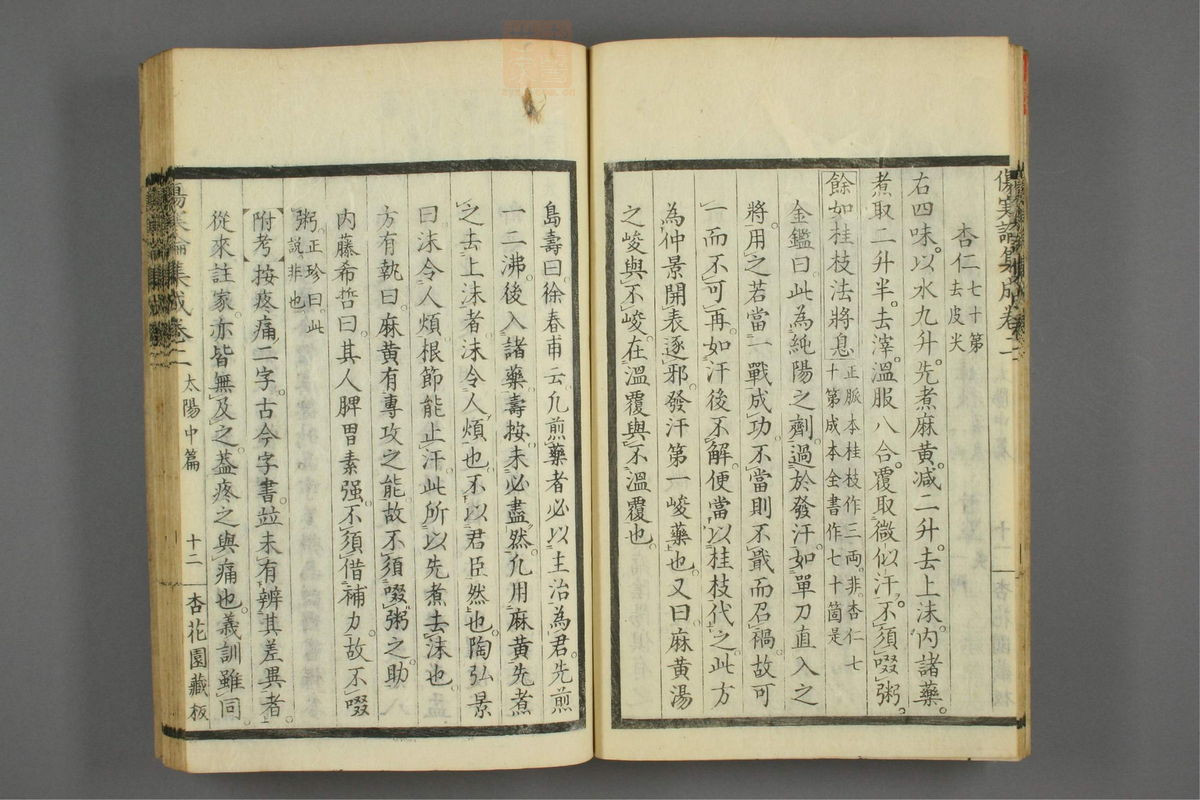 傷寒論集成卷二
杏仁七十第
去皮尖
右四味。以水九升。先煮麻黃。減二升。去上沫。內諸藥。
煮取二升半。去滓。溫服八合。覆取微似汗。不須啜粥。
餘如桂枝法將息正脈本桂枝作三兩。非。杏仁七
十第成本全書作七十箇是
金鑑曰。此為純陽之劑。過於發汗。如單刀直入之
將。用之若當。一戰成功。不當則不戢而召禍。故可
一而不可再。如汗後不解。便當以桂枝代之。此方
為仲景開表逐邪。發汗第一峻藥也。又曰。麻黃湯
之峻與不峻。在溫覆與不溫覆也。
島壽曰。徐春甫云。凡煎藥者必以主治為君。先煎
一二沸。後入諸藥。壽按。未必盡然。凡用麻黃。先煮
之去上沫者。沫令人煩也。不以君臣然也。陶弘景
曰。沫令人煩。根節能止汗。此所以先煮去沫也。
方有執曰。麻黃有專攻之能。故不須啜粥之助。
內藤希哲曰。其人脾胃素强。不須借補力。故不啜
粥。正珍曰。此
說非也
附考 按疼痛二字。古今字書。竝未有辨其差異者。
從來註家。亦皆無及之。蓋疼之與痛也。義訓雖同。
傷寒論集成卷二 太陽中篇 十二 杏花園藏板